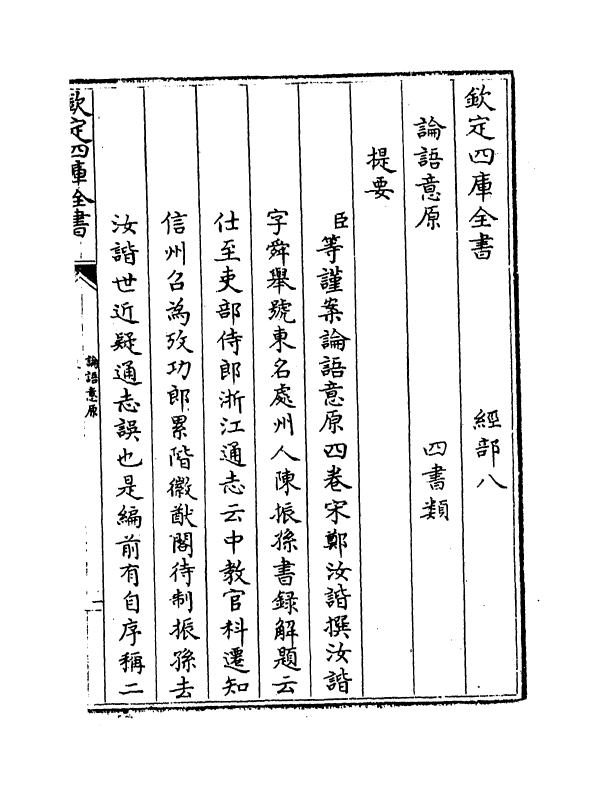 欽定四庫全書　經部八
論語意原　四書類
提要
臣等謹案論語意原四卷宋鄭汝諧撰汝諧
字舜舉號東名處州人陳振孫書録解題云
仕至吏部侍郎浙江通志云中教官科遷知
信州召為攷功郎累階徽猷閣待制振孫去
汝諧世近疑通志誤也是編前有自序稱二
欽定四庫全書
論語意原